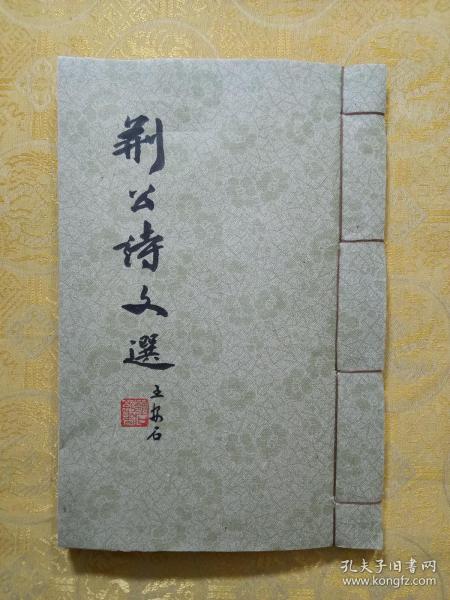 荆公詩文選
王安石
孔夫子旧书网
www.kongfz.com